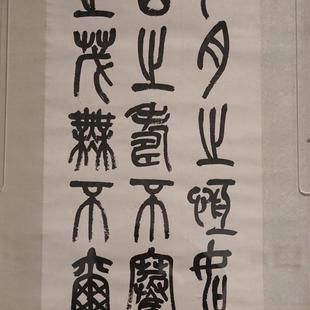 月之恆如
山之壽不騫
之茂無不爾